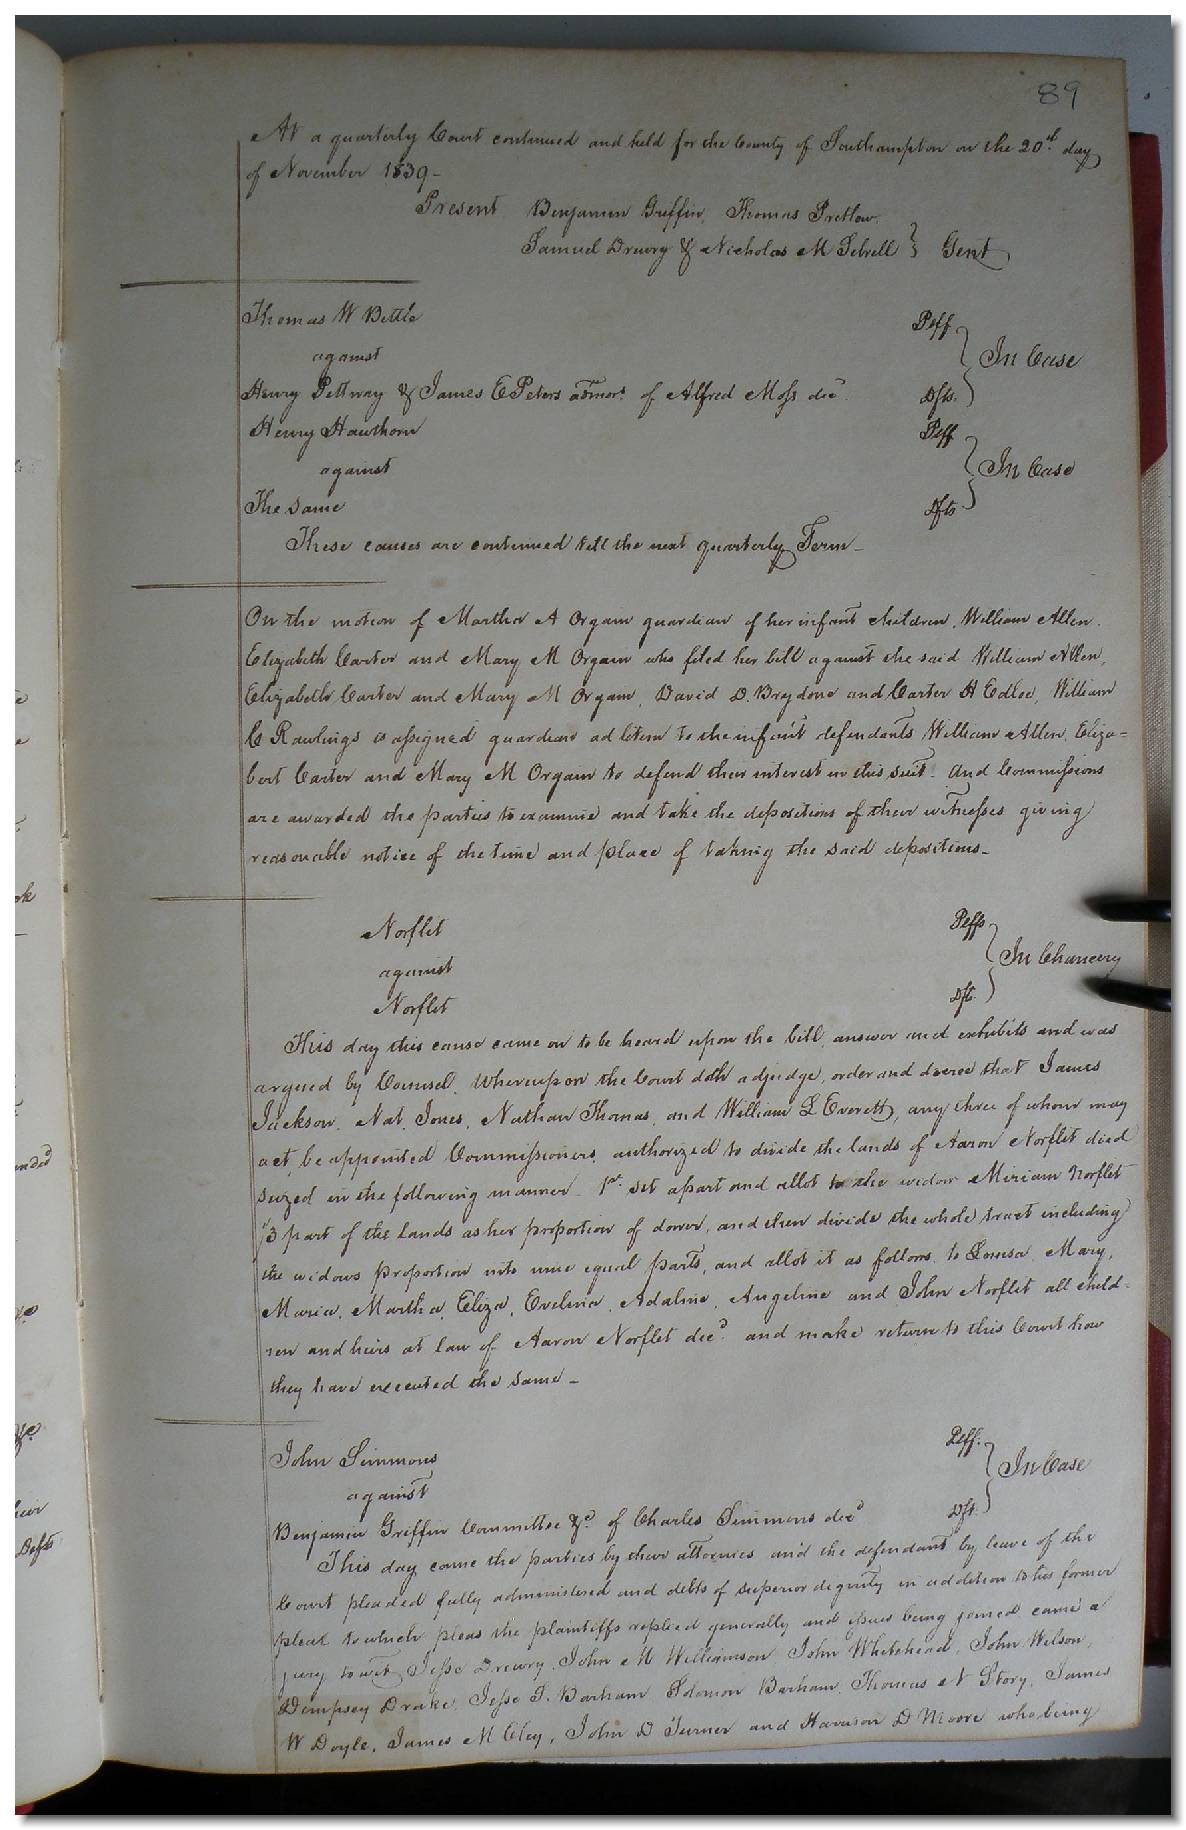 89
At a quarterly Court continued and held for the County of Southampton on the 20th day
of November 1839-
Present Benjamin Griffin, Thomas Pretlow
Samuel Drewry & Nicholas M Sebrell } Gent
Thomas W Bettle Plff
against } In Case
Henry Pettway & James E Peters admors of Alfred Moss decd Dfts.
Henry Hawthorn Plff
against } In Case
The Same Dfts
These causes are continued till the next quarterly Term-
On the motion of Martha A Orgain guardian of her infant children, William Allen,
Elizabeth Carter and Mary M Orgain who filed her bill against the said William Allen,
Elizabeth Carter and Mary M Orgain, David D. Brydone and Carter H Edloe, William
C Rawlings is assigned guardian ad litem to the infant defendants William Allen, Eliza=
bert Carter and Mary M Orgain to defend their interest in this suit. And Commissions
are awarded the parties to examine and take the depositions of their witnesses giving
reasonable notice of the time and place of taking the said depositions-
Norflet Plffs
against } In Chancery
Norflet Dft.
This day this cause came on to be heard upon the bill, answer and exhibits and was
argued by Counsel. Whereupon the Court doth adjudge, order and decree that James
Jackson, Nat. Jones, Nathan Thomas, and William L Everett, any three of whom may
act, be appointed Commissioners, authorized to divide the lands of Aaron Norflet died
seized in the following manner. 1st. set apart and allot to the widow Miriam Norflet
1/3 part of the lands as her proportion of dower, and then divide the whole tract including
the widows proportion into nine equal parts, and allot it as follows, to Louisa, Mary,
Maria, Martha, Eliza, Evelina, Adaline, Angeline and John Norflet all child=
ren and heirs at law of Aaron Norflet decd. and make return to this Court how
they have executed the same-
John Simmons Plff.
against } In Case
Benjamin Griffin Committee &c. of Charles Simmons decd Dft.
This day came the parties by their attornies and the defendant by leave of the
Court pleaded fully administered and debts of superior dignity in addition to his former
pleas to which pleas the plaintiffs replied generally and issues being joined came a
jury to wit, Jesse Drewry, John M Williamson, John Whitehead, John Wilson,
Dempsey Drake, Jesse T. Barham, Solomon Barham, Thomas N Story, James
W Doyle, James M Cloy, John D Turner and Harrison D Moore who being